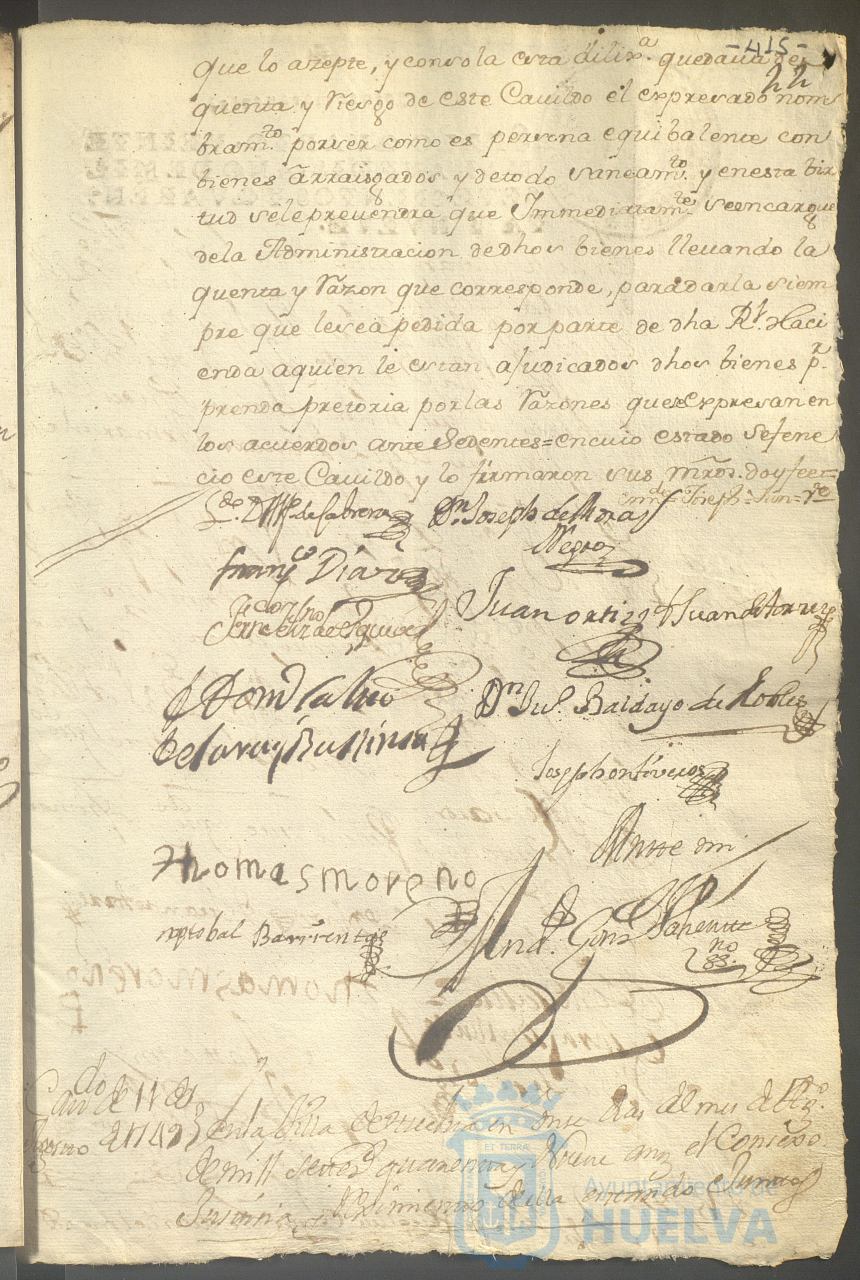 -415-
22
que lo azepte, y con sola esta dilixª. quedaua de
quenta y Riesgo de este Cauildo el expresado nom
bramto. por ser como es persona equibalente con
bienes arraisgados y de todo saneamto. y en esta bir
tud se le preuendra que Immediatamte. se encargue
de la Administracion de dhos bienes lleuando la
quenta y Razon que corresponde, para darla siem
pre que le sea pedida por parte de dha Rl. Haci
enda a quien le estan ajudicados dhos bienes pr.
prenda pretoria por las Razones que se expresan en
los acuerdos ante Sedentes = en cuio estado se fene
cio este Cauildo y lo firmaron sus mrds. doy fee =
Joseph
de Cabrera Dn. Joseph de Mora
Negro
Franco Diaz
Juan ortiz Juan de
Dn. Baldayo de Robles
Joseph ontiveros
Thomas moreno
Ante mi
xptobal Barrientos
Caudo de 11 de
de 1749
en la Villa de Huelua en onse dias del mes de
de mill Settesº. quarenta y Nueve años el Consexo
Justicia y Reximiento de ella estando Juntos
ET TERRÆ
Ayuntamiento de
HUELVA